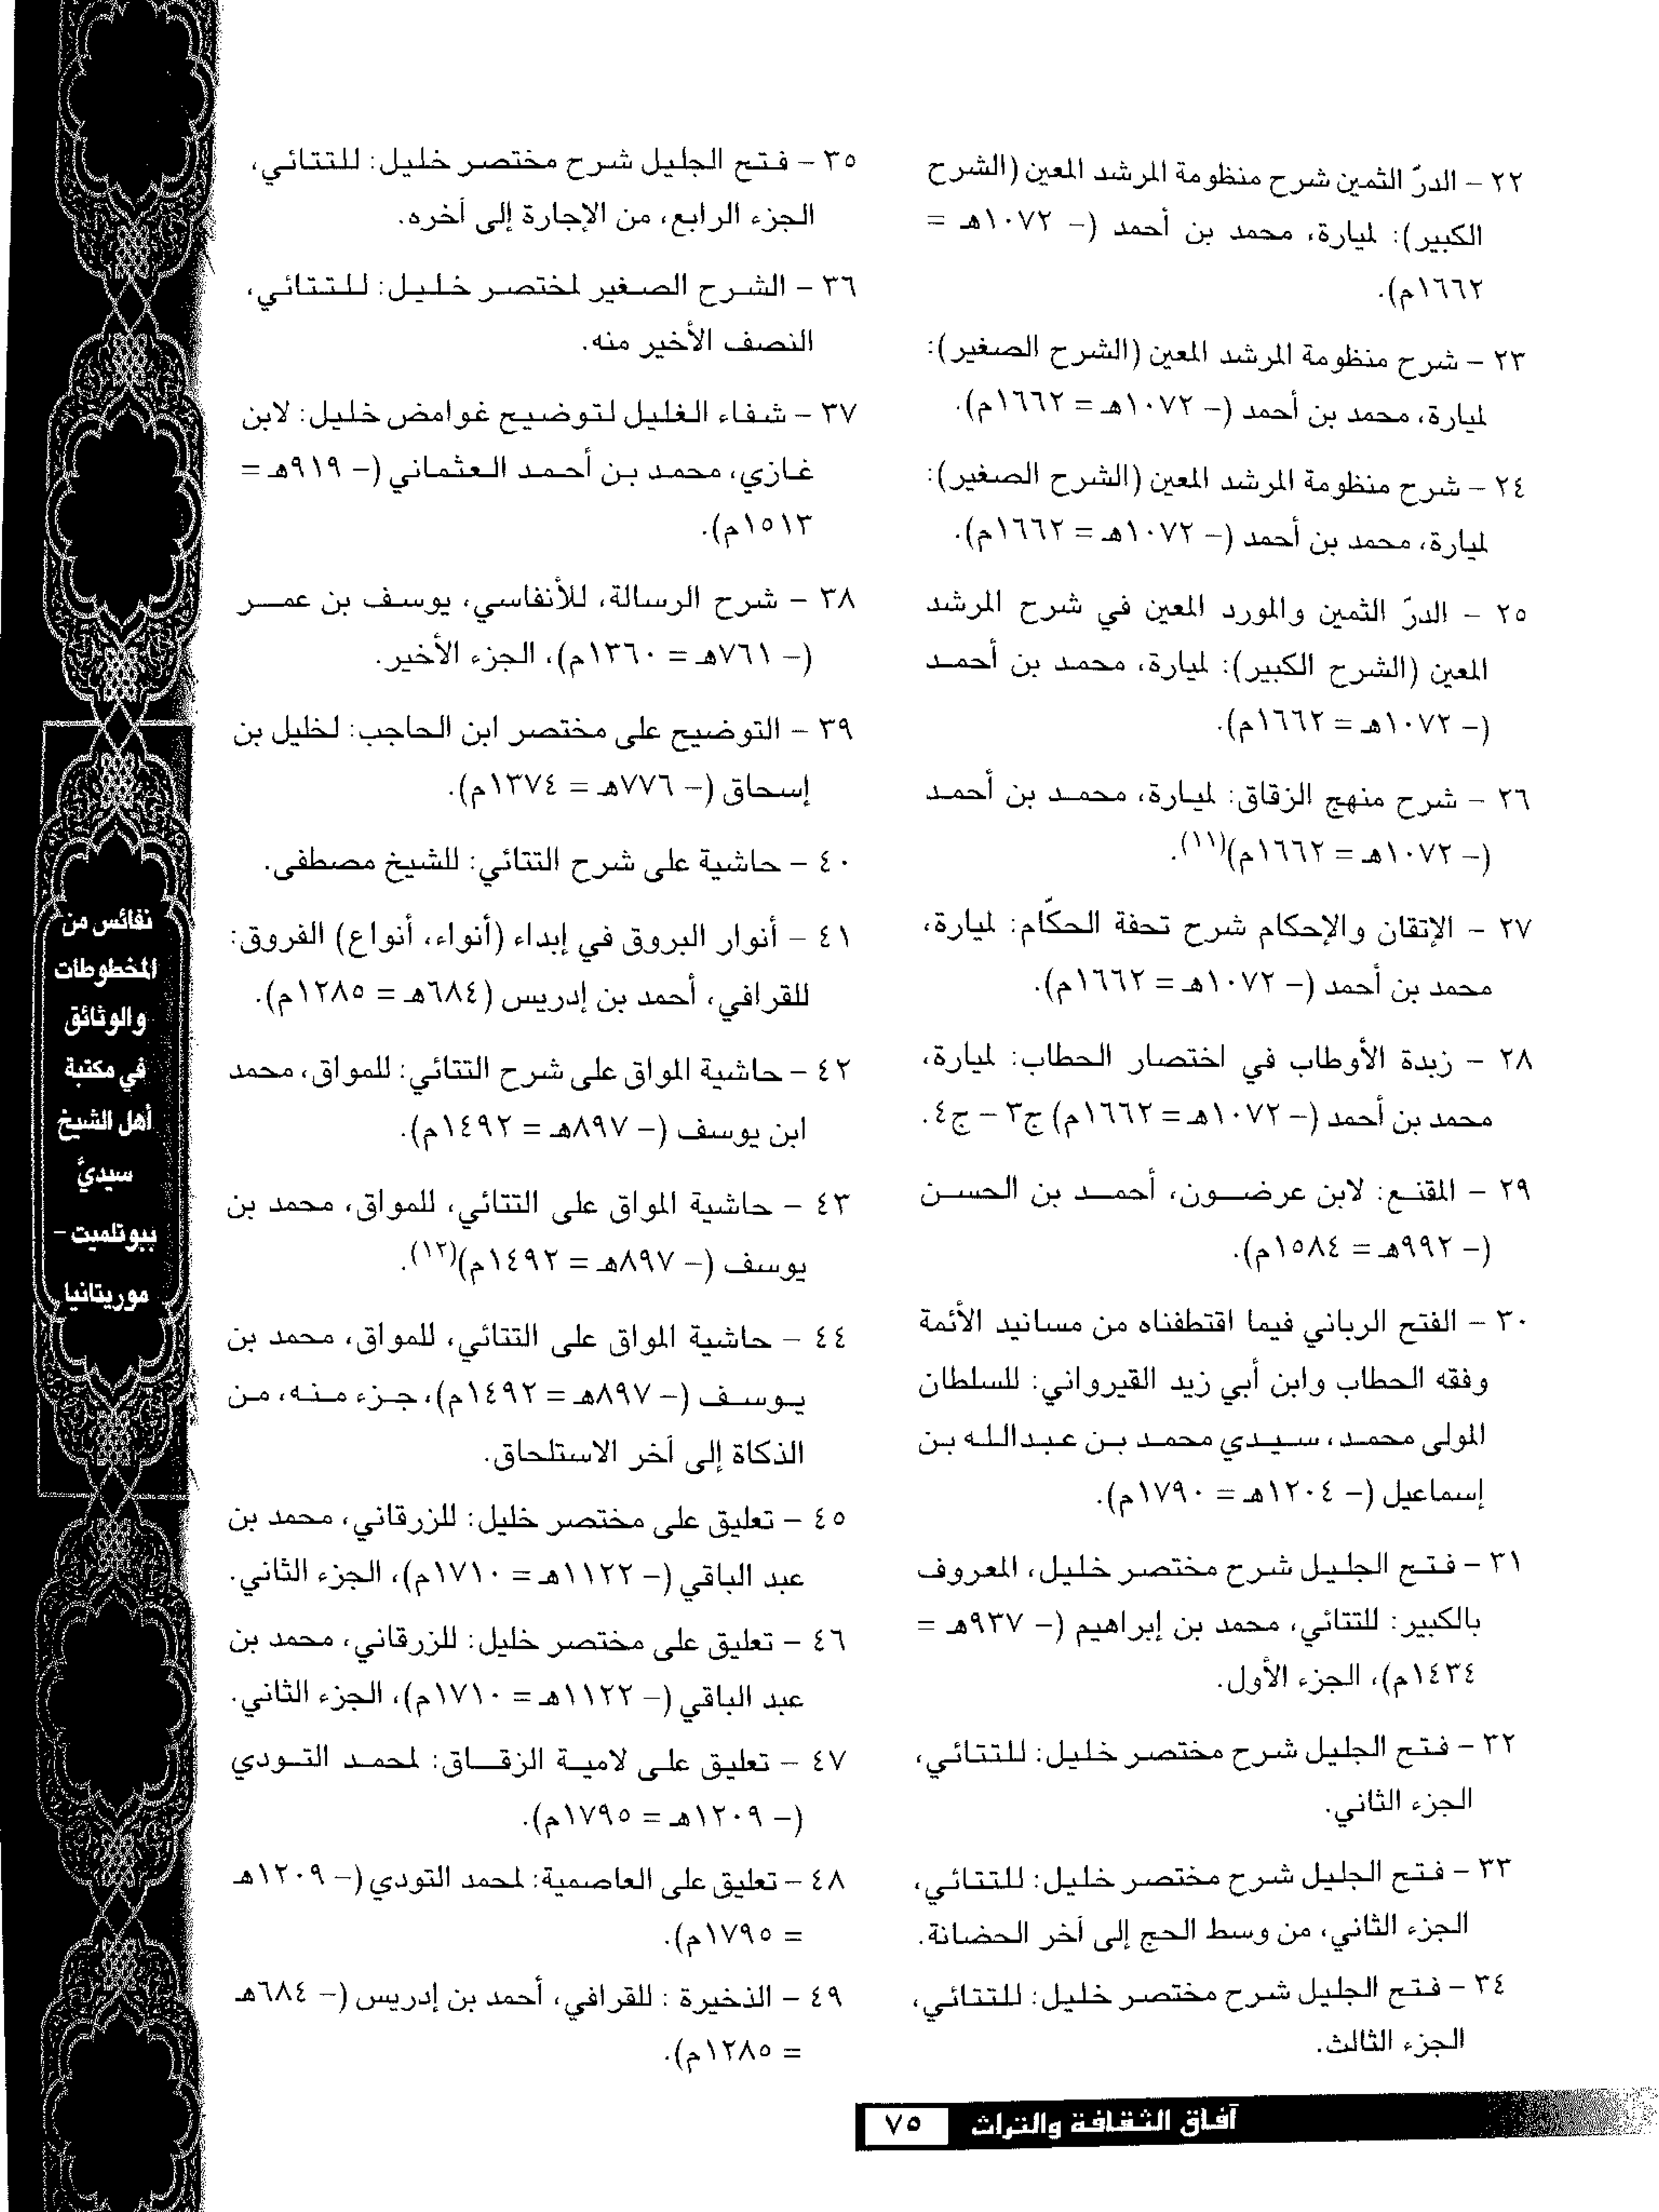 ٢٢ – الدرّ الثمين شرح منظومة المرشد المعين (الشرح
الكبير): لميارة، محمد بن أحمد (– ١٠٧٢هـ =
١٦٦٢م).
٢٣ – شرح منظومة المرشد المعين (الشرح الصغير):
لميارة، محمد بن أحمد (– ١٠٧٢هـ = ١٦٦٢م).
٢٤ – شرح منظومة المرشد المعين (الشرح الصغير):
لميارة، محمد بن أحمد (– ١٠٧٢هـ = ١٦٦٢م).
٢٥ – الدرّ الثمين والمورد المعين في شرح المرشد
المعين (الشرح الكبير): لميارة، محمد بن أحمد
(– ١٠٧٢هـ = ١٦٦٢م).
٢٦ – شرح منهج الزقاق: لميارة، محمد بن أحمد
(– ١٠٧٢هـ = ١٦٦٢م)(١١).
٢٧ – الإتقان والإحكام شرح تحفة الحكّام: لميارة،
محمد بن أحمد (– ١٠٧٢هـ = ١٦٦٢م).
٢٨ – زبدة الأوطاب في اختصار الحطاب: لميارة،
محمد بن أحمد (– ١٠٧٢هـ = ١٦٦٢م) ج٣ – ج٤.
٢٩ – المقنع: لابن عرضون، أحمد بن الحسن
(– ٩٩٢هـ = ١٥٨٤م).
٣٠ – الفتح الرباني فيما اقتطفناه من مسانيد الأئمة
وفقه الحطاب وابن أبي زيد القيرواني: للسلطان
المولى محمد، سيدي محمد بن عبدالله بن
إسماعيل (– ١٢٠٤هـ = ١٧٩٠م).
٣١ – فتح الجليل شرح مختصر خليل، المعروف
بالكبير: للتتائي، محمد بن إبراهيم (– ٩٣٧هـ =
١٤٣٤م)، الجزء الأول.
٣٢ – فتح الجليل شرح مختصر خليل: للتتائي،
الجزء الثاني.
٣٣ – فتح الجليل شرح مختصر خليل: للتتائي،
الجزء الثاني، من وسط الحج إلى آخر الحضانة.
٣٤ – فتح الجليل شرح مختصر خليل: للتتائي،
الجزء الثالث.
٣٥ – فتح الجليل شرح مختصر خليل: للتتائي،
الجزء الرابع، من الإجارة إلى آخره.
٣٦ – الشرح الصغير لمختصر خليل: للتتائي،
النصف الأخير منه.
٣٧ – شفاء الغليل لتوضيح غوامض خليل: لابن
غازي، محمد بن أحمد العثماني (– ٩١٩هـ =
١٥١٣م).
٣٨ – شرح الرسالة، للأنفاسي، يوسف بن عمر
(– ٧٦١هـ = ١٣٦٠م)، الجزء الأخير.
٣٩ – التوضيح على مختصر ابن الحاجب: لخليل بن
إسحاق (– ٧٧٦هـ = ١٣٧٤م).
٤٠ – حاشية على شرح التتائي: للشيخ مصطفى.
٤١ – أنوار البروق في إبداء (أنواء، أنواع) الفروق:
للقرافي، أحمد بن إدريس (٦٨٤هـ = ١٢٨٥م).
٤٢ – حاشية المواق على شرح التتائي: للمواق، محمد
ابن يوسف (– ٨٩٧هـ = ١٤٩٢م).
٤٣ – حاشية المواق على التتائي، للمواق، محمد بن
يوسف (– ٨٩٧هـ = ١٤٩٢م)(١٢).
٤٤ – حاشية المواق على التتائي، للمواق، محمد بن
يوسف (– ٨٩٧هـ = ١٤٩٢م)، جزء منه، من
الذكاة إلى آخر الاستلحاق.
٤٥ – تعليق على مختصر خليل: للزرقاني، محمد بن
عبد الباقي (– ١١٢٢هـ = ١٧١٠م)، الجزء الثاني.
٤٦ – تعليق على مختصر خليل: للزرقاني، محمد بن
عبد الباقي (– ١١٢٢هـ = ١٧١٠م)، الجزء الثاني.
٤٧ – تعليق على لامية الزقاق: لمحمد التودي
(– ١٢٠٩هـ = ١٧٩٥م).
٤٨ – تعليق على العاصمية: لمحمد التودي (– ١٢٠٩هـ
= ١٧٩٥م).
٤٩ – الذخيرة : للقرافي، أحمد بن إدريس (– ٦٨٤هـ
= ١٢٨٥م).
نفائس من
المخطوطات
والوثائق
في مكتبة
أهل الشيخ
سيديَّ
ببوتلميت –
موريتانيا
آفاق الثقافة والتراث ٧٥